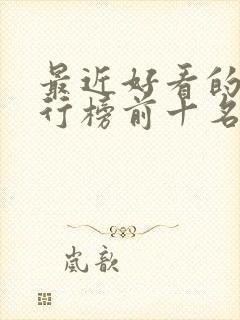 最近好看的
行榜前十名
岚歆